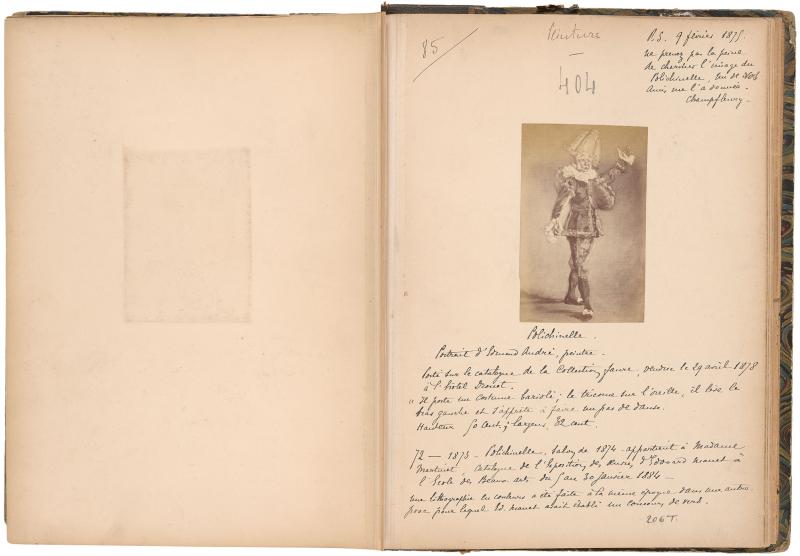 85
Peinture
404
P.S. 9 février 1875.
ne prenez pas la peine
de chercher l'image du
Polichinelle, un de vos
amis me l'a donnée.
Champfleury.
Polichinelle.
Portrait d'Edmond André, peintre.
Porté sur le catalogue de la Collection Faure, vendue le 29 avril 1878
à l'hôtel Drouot.
"Il porte un costume bariolé; le tricorne sur l'oreille, il lève le
bras gauche et s'apprête à faire un pas de danse.
Hauteur 50 cent; largeur, 32 cent.
72 — 1873 - Polichinelle, Salon de 1874 - appartient à Madame
Martinet, Catalogue de l'Exposition des œuvres d'Edouard Manet à
l'Ecole des Beaux-arts du 5 au 30 janvier 1884 —
une lithographie en couleurs a été faite à la même époque dans une autre
pose pour lequel Ed. Manet avait établi un concours de vers.
206 T.